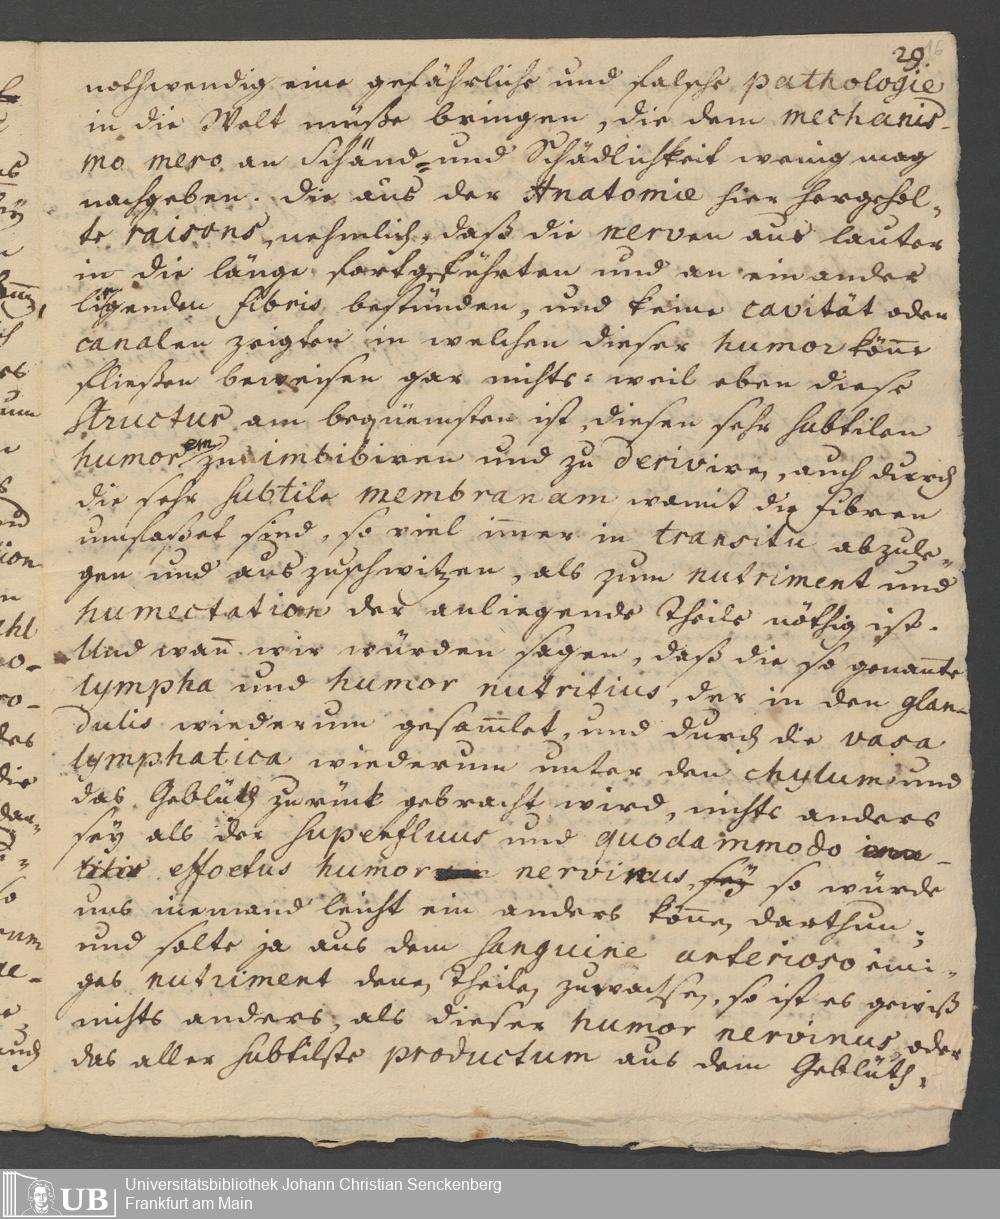 29. 16
nothwendig eine gefährliche und falsche pathologie
in die Welt müße bringen, die dem mechanis-
mo mero an Schänd- und Schädlichkeit wenig mag
nachgeben. die aus der Anatomie hier hergehol-
te raisons, nehmlich, daß die nerven aus lauter
in die länge fortgeführten und an einander
ligenden fibris bestünden, und keine cavität oder
canalen zeigten in welchen dieser humor kön̅e
fließen beweisen gar nichts: weil eben diese
structur am bequemsten ist, diesen sehr subtilen
humorem zu imbibiren und zu derivire, auch durch
die sehr subtile membranam womit die fibren
umfaßet sind, so viel im̅er in transitu abzule-
gen und auszuschwitzen, als zum nutriment und
humectation der anliegende theile nöthig ist.
Und wan̅ wir würden sagen, daß die so genan̅te
lympha und humor nutritius, der in den glan-
dulis wiederum gesam̅let, und durch die vasa
lymphatica wiederum unter den chylum und
das Geblüth zurück gebracht wird, nichts anders
sey als der superfluus und quodammodo
effoetus humor nervinus, sey so würde
uns niemand leicht ein anders kön̅e darthun;
und solte ja aus dem sanguine arterioso eini-
ges nutriment dene theile zuwachsen, so ist es gewiß
nichts anders, als dieser humor nervinus, oder
das aller subtilste productum aus dem Geblüth.
UB
Universitätsbibliothek Johann Christian Senckenberg
Frankfurt am Main